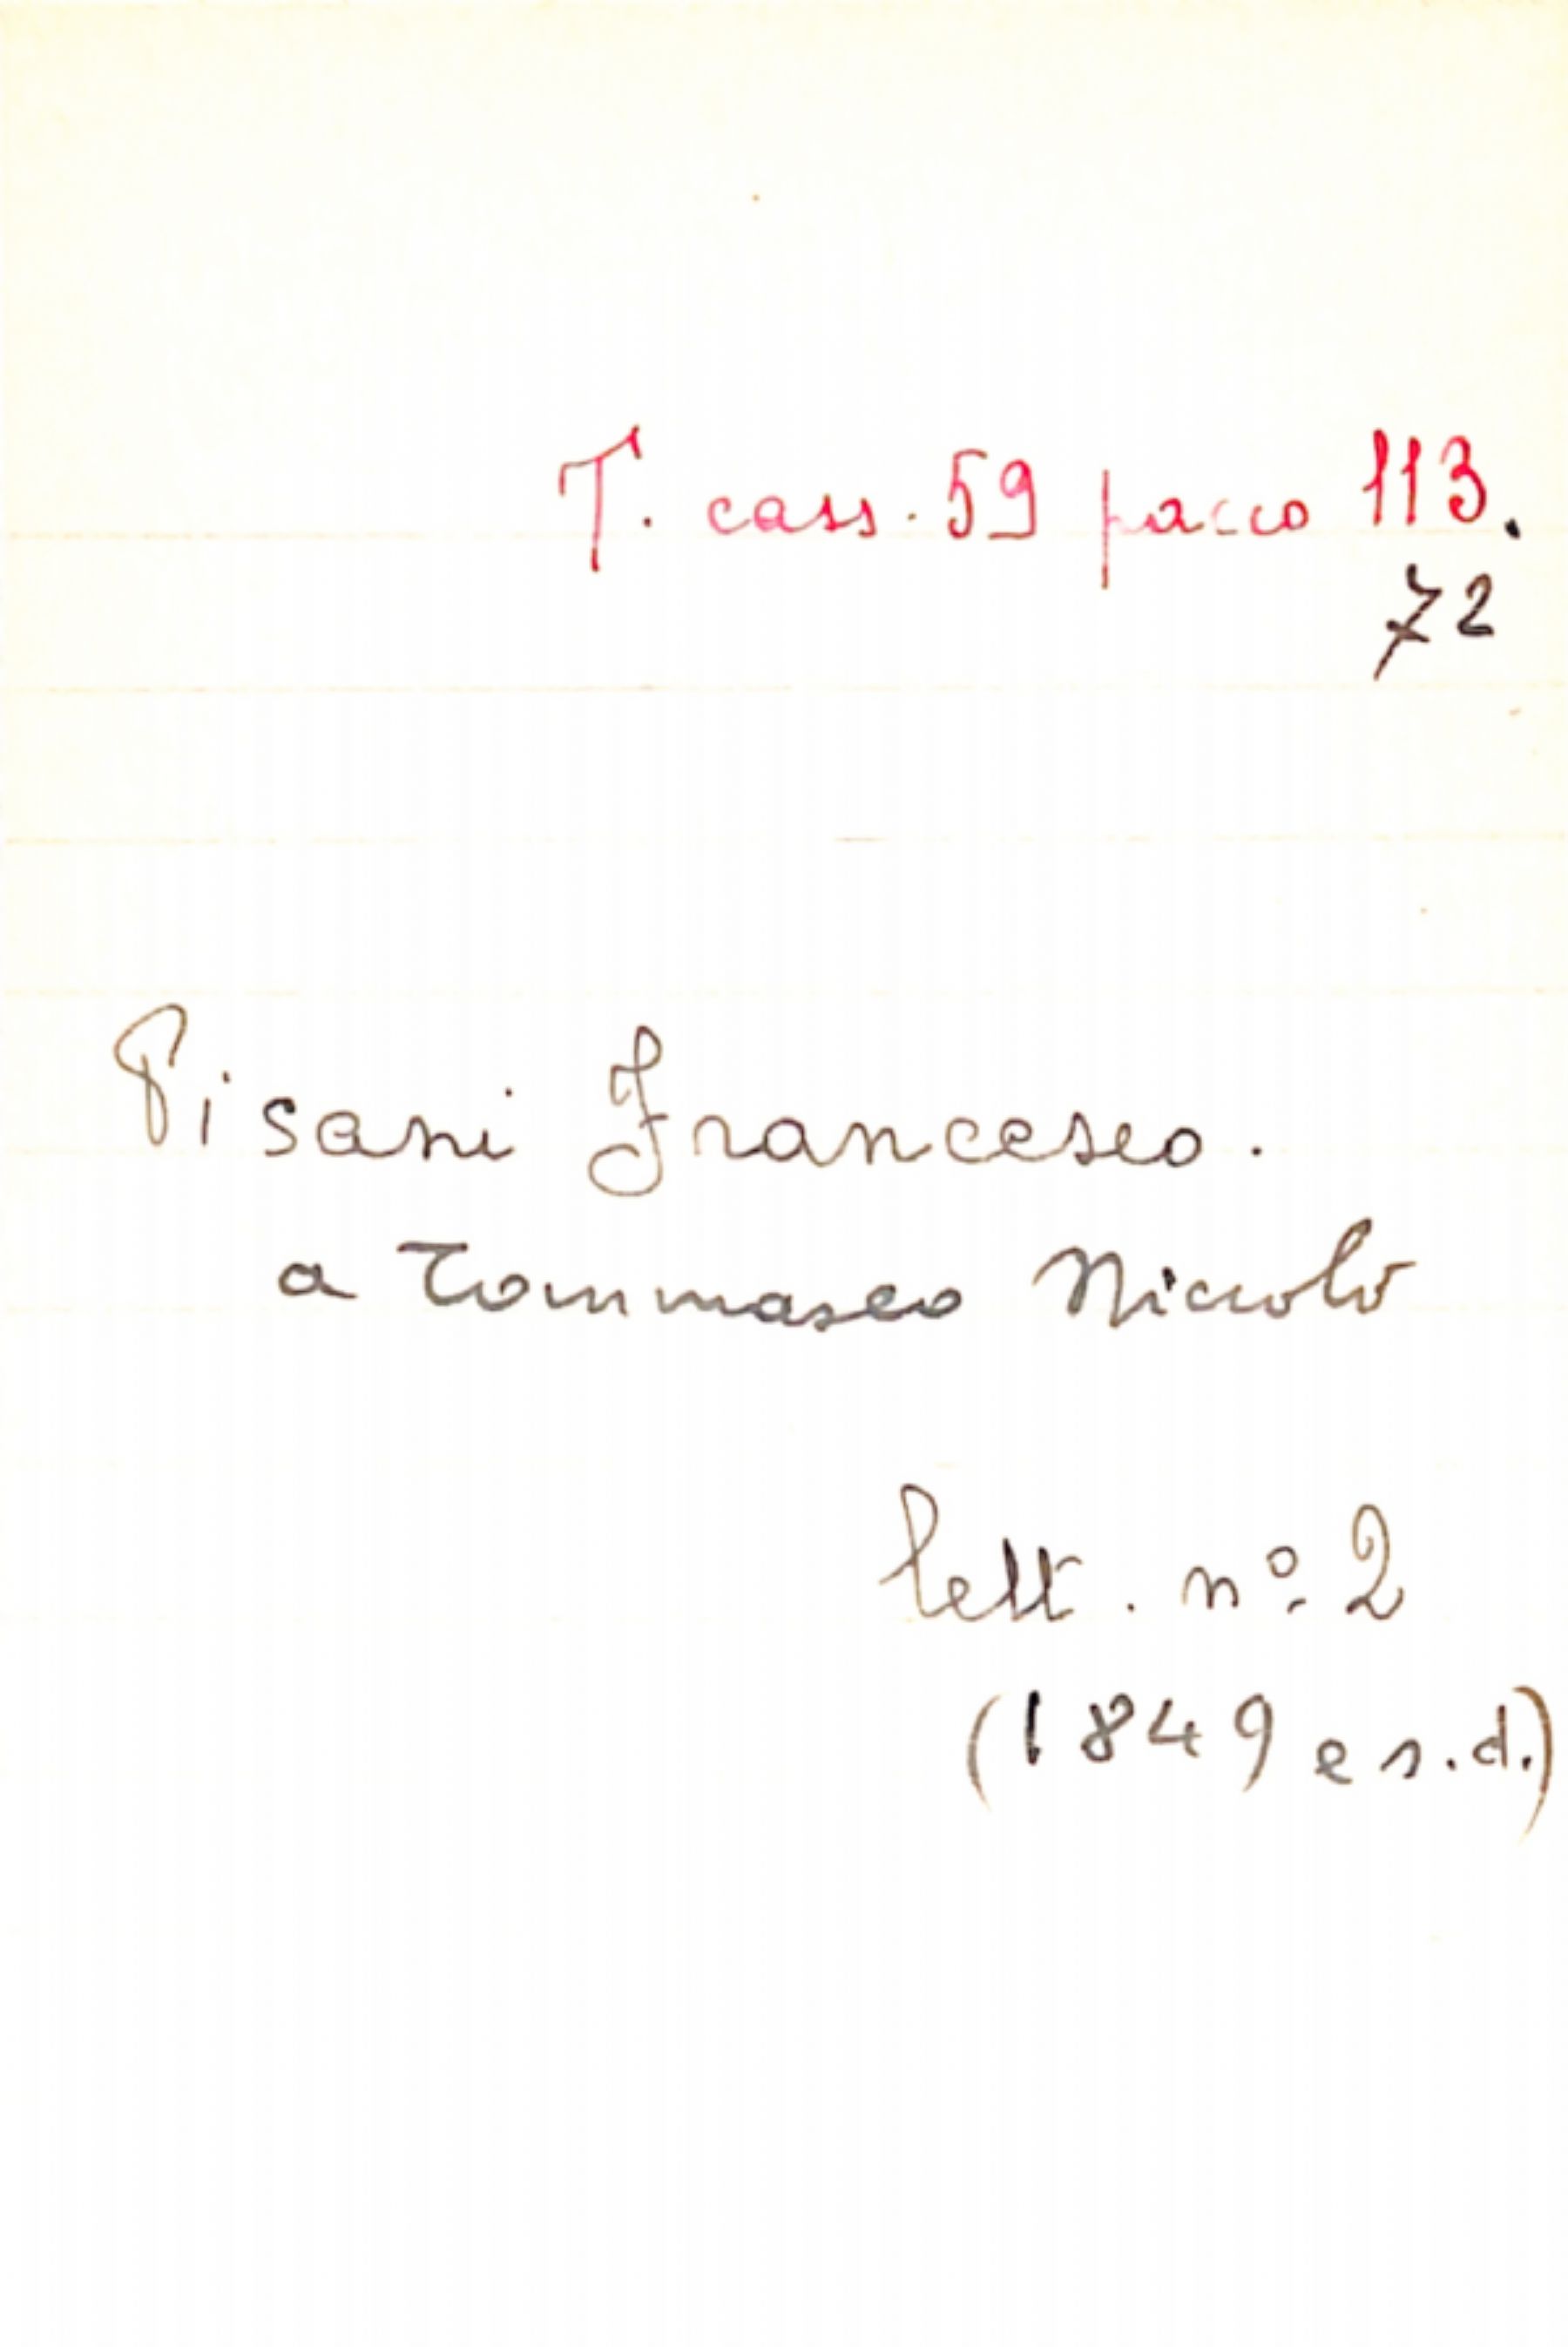 T. cass. 59 pacco 113.
72
Pisani Francesco.
a Tommaseo Niccolò
lett. nº 2
(1849 e s.d.)